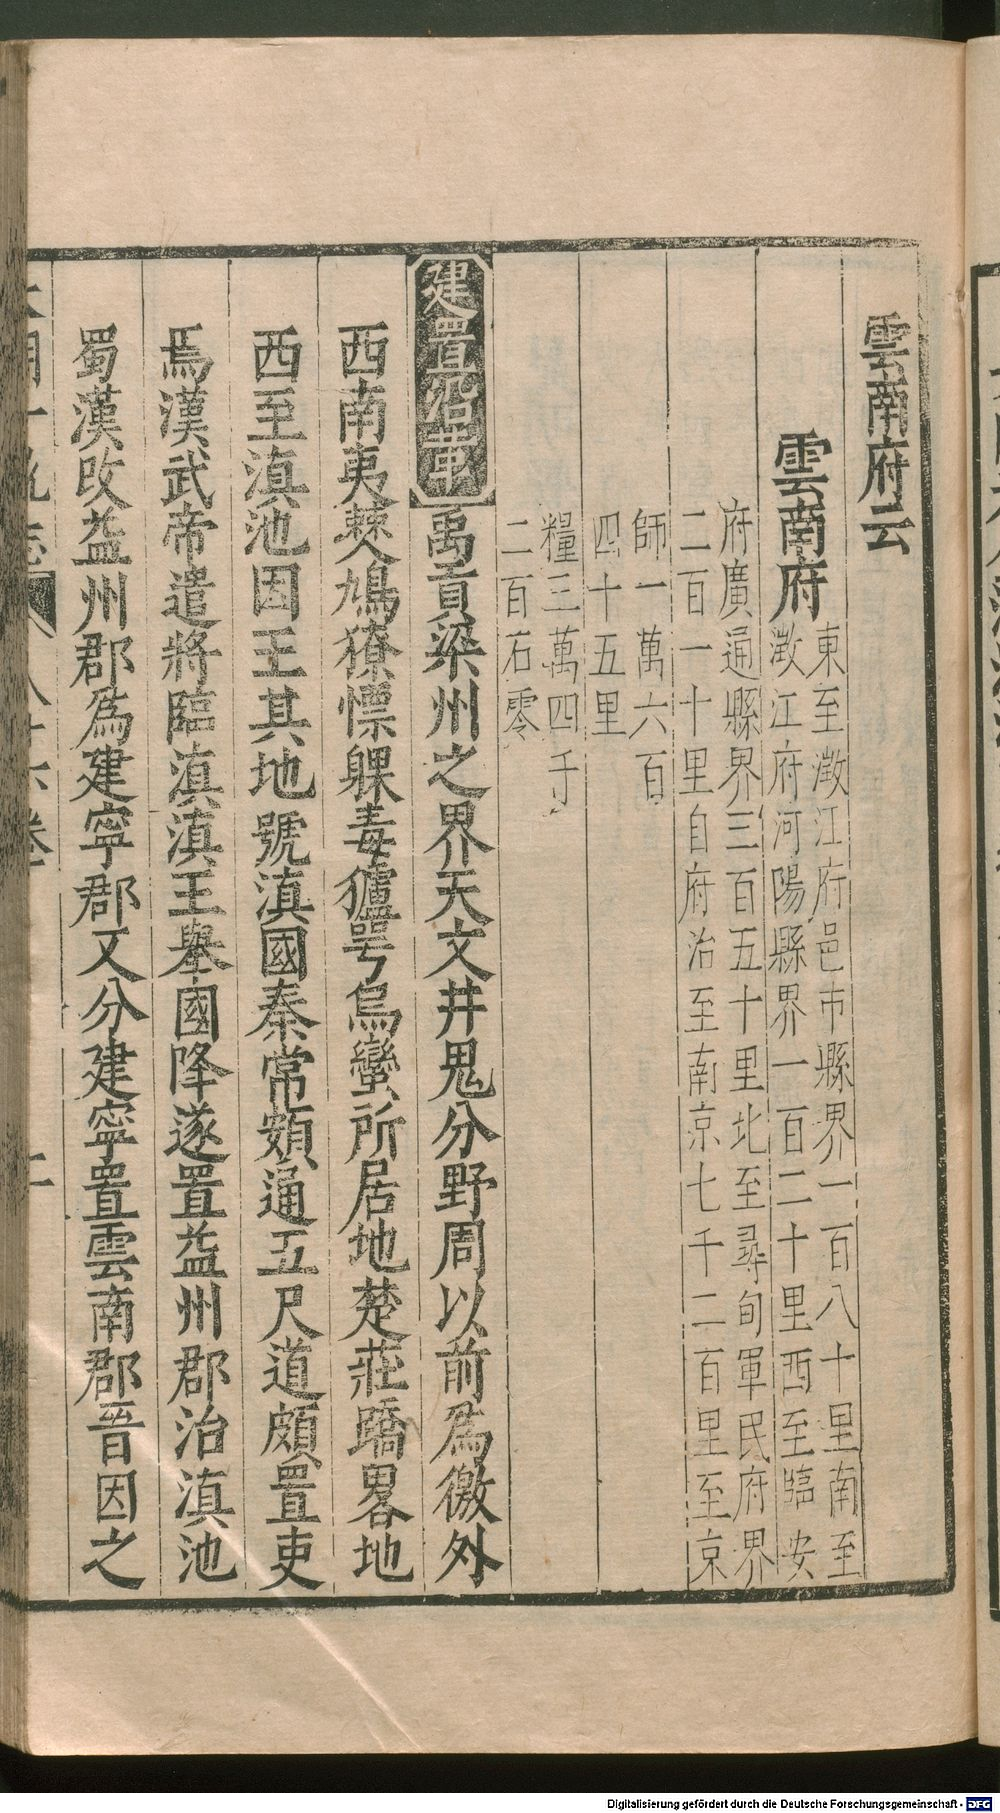 雲南府云
雲南府
東至澂江府邑市縣界一百八十里南至
澂江府河陽縣界一百二十里西至臨安
府廣通縣界三百五十里北至尋甸軍民府界
二百一十里自府治至南京七千二百里至京
師一萬六百
四十五里
糧三萬四千
二百石零
建置沿革禹貢梁州之界天文井鬼分野周以前為徼外
西南夷僰人鳩獠慓躶毒獹咢烏蠻所居地楚莊蹻畧地
西至滇池因王其地號滇國秦常頞通五尺道頗置吏
焉漢武帝遣將臨滇滇王舉國降遂置益州郡治滇池
蜀漢改益州郡為建寧郡又分建寧置雲南郡晉因之
Digitalisierung gefördert durch die Deutsche Forschungsgemeinschaft - DFG